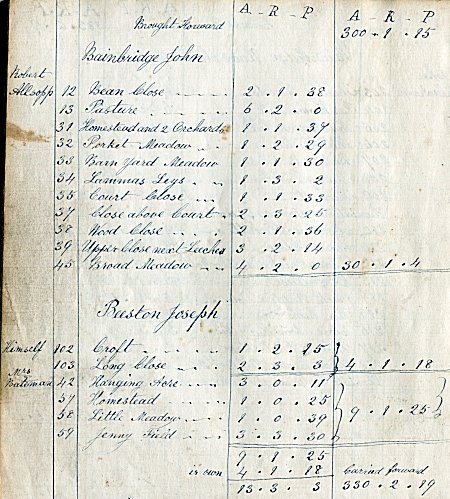 A - R - P A - R - P
Brought Forward 300 - 1 - 15
Bainbridge John
Robert
Allsopp 12 Bean Close 2 . 1 . 38
13 Pasture 6 . 2 . 0
31 Homestead and 2 Orchards 1 . 1 . 37
32 Porket Meadow 1 . 2 . 29
33 Barn Yard Meadow 1 . 1 . 30
34 Lammas Leys 1 . 3 . 2
35 Court Close 1 . 1 . 33
37 Close above Court 2 . 3 . 25
38 Wood Close 2 . 1 . 36
39 Upper Close next Leeches 3 . 2 . 14
45 Broad Meadow 4 . 2 . 0 30 . 1 . 4
Beeston Joseph
Himself 102 Croft 1 . 2 . 15
103 Long Close 2 . 3 . 3 4 . 1 . 18
Mrs
Bateman 42 Hanging Acre 3 . 0 . 11
57 Homestead 1 . 0 . 25
58 Little Meadow 1 . 0 . 39 9 . 1 . 25
59 Jenny Field 3 . 3 . 30
9 . 1 . 25
is own 4 . 1 . 18 Carried forward
13 . 3 . 3 330 . 2 . 19